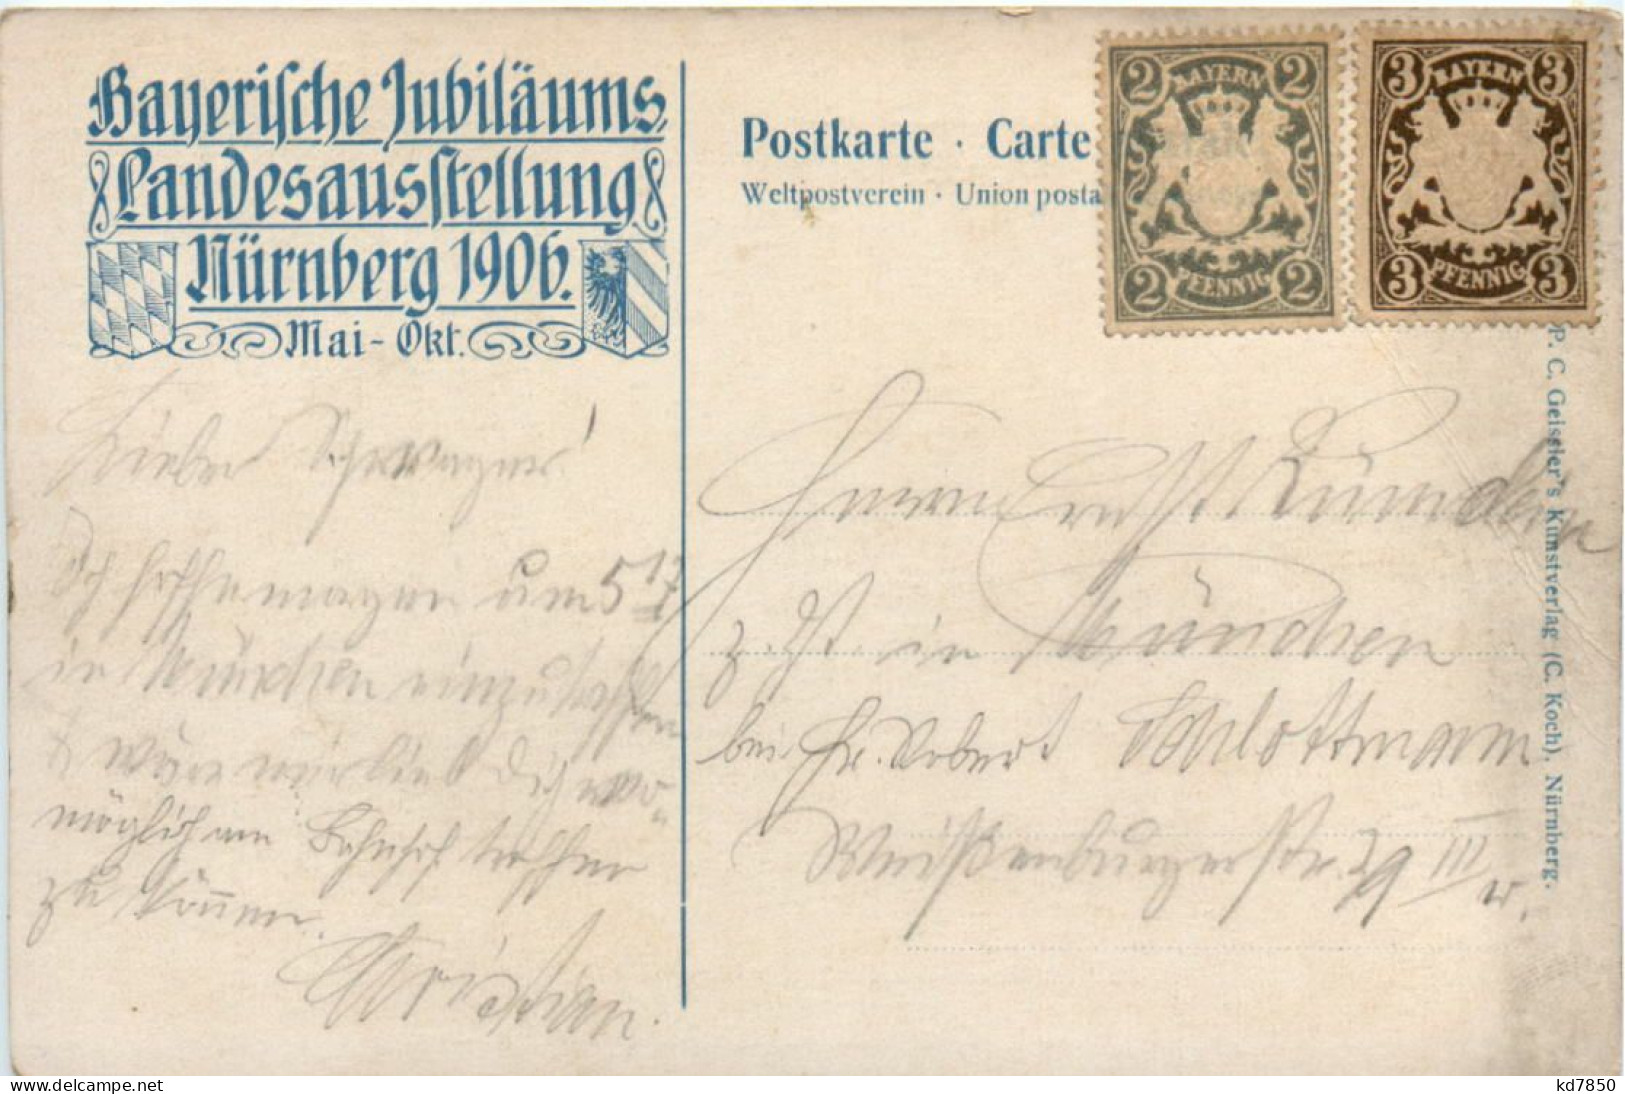 Bayerische Jubiläums
Landesausstellung
Nürnberg 1906.
Mai - Okt.
Postkarte · Carte
Weltpostverein · Union posta
2 BAYERN 2
2 PFENNIG 2
3 BAYERN 3
3 PFENNIG 3
P. C. Geissler's Kunstverlag (C. Koch), Nürnberg.
Lieber Schwager!
Ich hoffe morgen um 5 17
in München einzutreffen
& wäre mir lieb Dich wo-
möglich am Bahnhof treffen
zu können.
Christian.
Herrn Ernst
z. Zt. in München
bei Hr. Robert Schlottmann
Weißenburgerstr. 29 III r.
kd7850